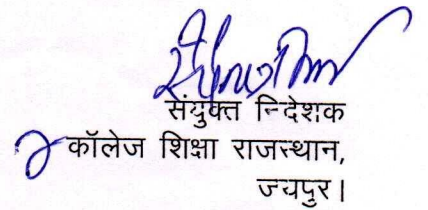 संयुक्त निदेशक
कॉलेज शिक्षा राजस्थान,
जयपुर।